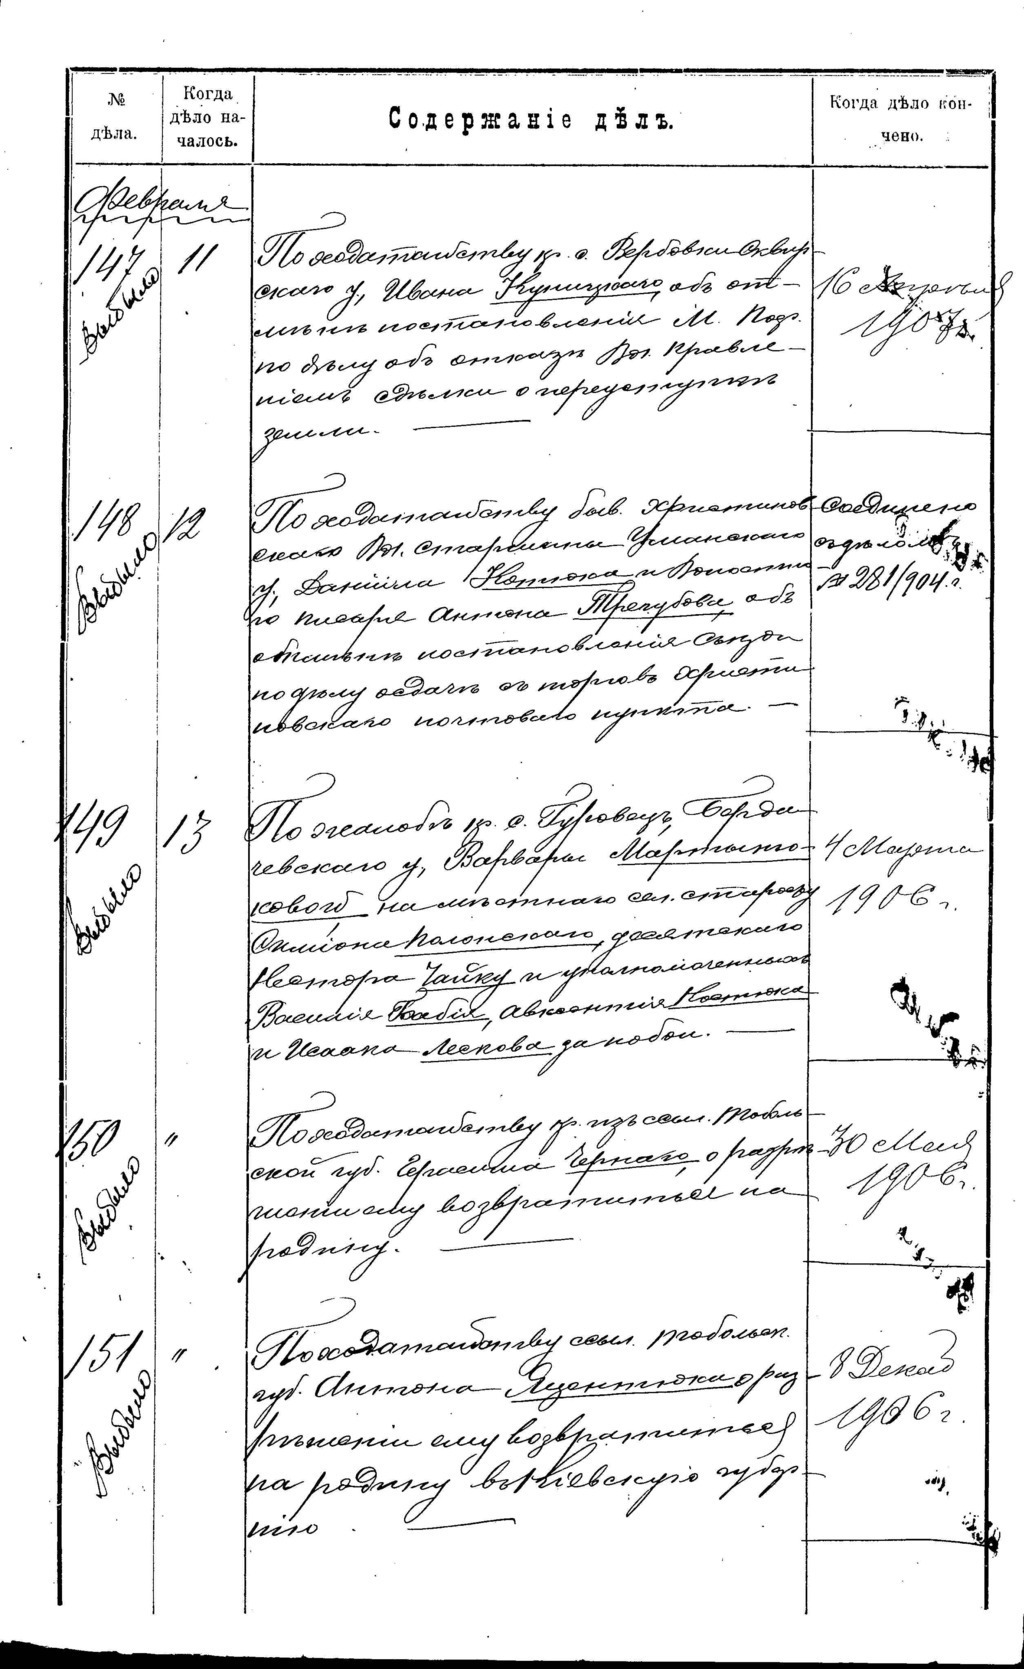 № дѣла.
Когда дѣло на-
чалось.
Содержаніе дѣлъ.
Когда дѣло кон-
чено.
Февраля
147
Выбыло
11
По ходатайству кр. с. Вербовки Сквир-
скаго у, Ивана Куницкаго, объ от-
мѣнѣ постановленія М. Поср.
по дѣлу объ отказѣ Вол. Правле-
ніемъ сдѣлки о переуступкѣ
земли.
16
1907г.
148
Выбыло
12
По ходатайству быв. Христинов
скаго Вол. старшины Уманскаго
у, Даніила и Волостно
го писаря Антона Трегубова, объ
отмѣнѣ постановленія Съѣзда
по дѣлу о сдачѣ съ торговъ Христи
новскаго почтоваго пункта. —
Соединено
съ дѣломъ
№ 281/904 г.
149
Выбыло
13
По жалобѣ кр. с. Гуровецъ, Берди
чевскаго у, Варвары Мартыню-
ковой на мѣстнаго сел. старосту
Симіона Полонскаго, десятскаго
Нестора Чайку и уполномоченныхъ
Василія Бабія, Авксентія Костюка
и Исаака Лескова за побои. —
4 Марта
1906 г.
150
Выбыло
"
По ходатайству кр. изъ ссыл. Тоболь-
ской губ. Герасима Чернаго, о разрѣ-
шеніи ему возвратиться на
родину. —
30 Мая
1906 г.
151
Выбыло
"
По ходатайству ссыл. Тобольск.
губ. Антона Яцентюка о раз-
рѣшеніи ему возвратиться
на родину въ Кіевскую губер-
нію. —
8 Декаб
1906 г.